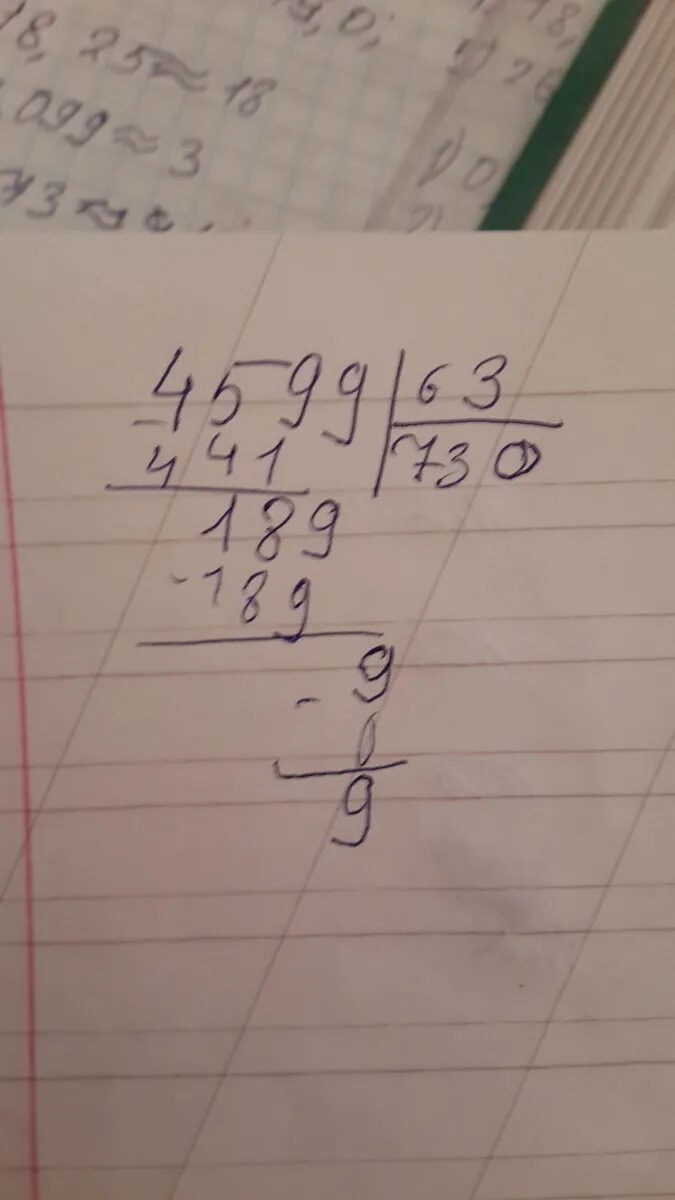 18, 25 ≈ 18
099 ≈ 3
4599 | 63
- 441 | 730
189
- 189
- 9
0
9